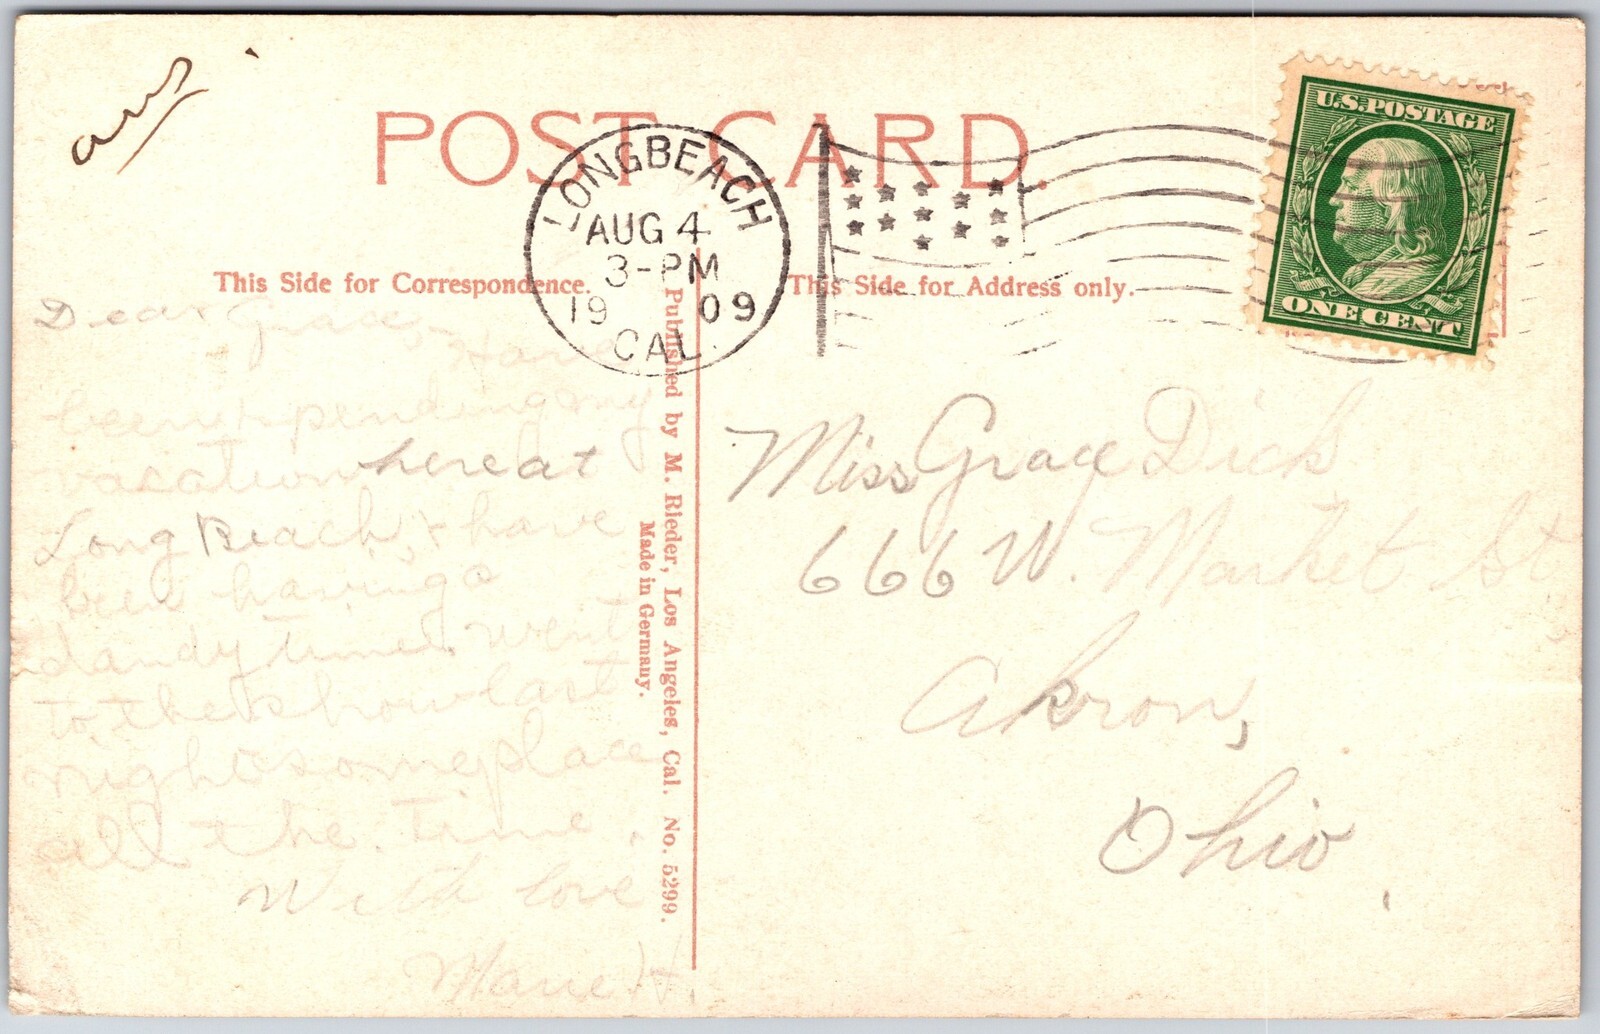 ans
POST CARD.
LONG BEACH
AUG 4
3-PM
1909
CAL.
U.S. POSTAGE
ONE CENT
This Side for Correspondence.
This Side for Address only.
Dear Grace,-
Have
been spending my
vacation here at
Long Beach, & have
been having a
dandy time. went
to the show last
night & someplace
all the time.
With love
Marie H.
Published by M. Rieder, Los Angeles, Cal. No. 5299.
Made in Germany.
Miss Grace Dick
666 W. Market St
Akron,
Ohio